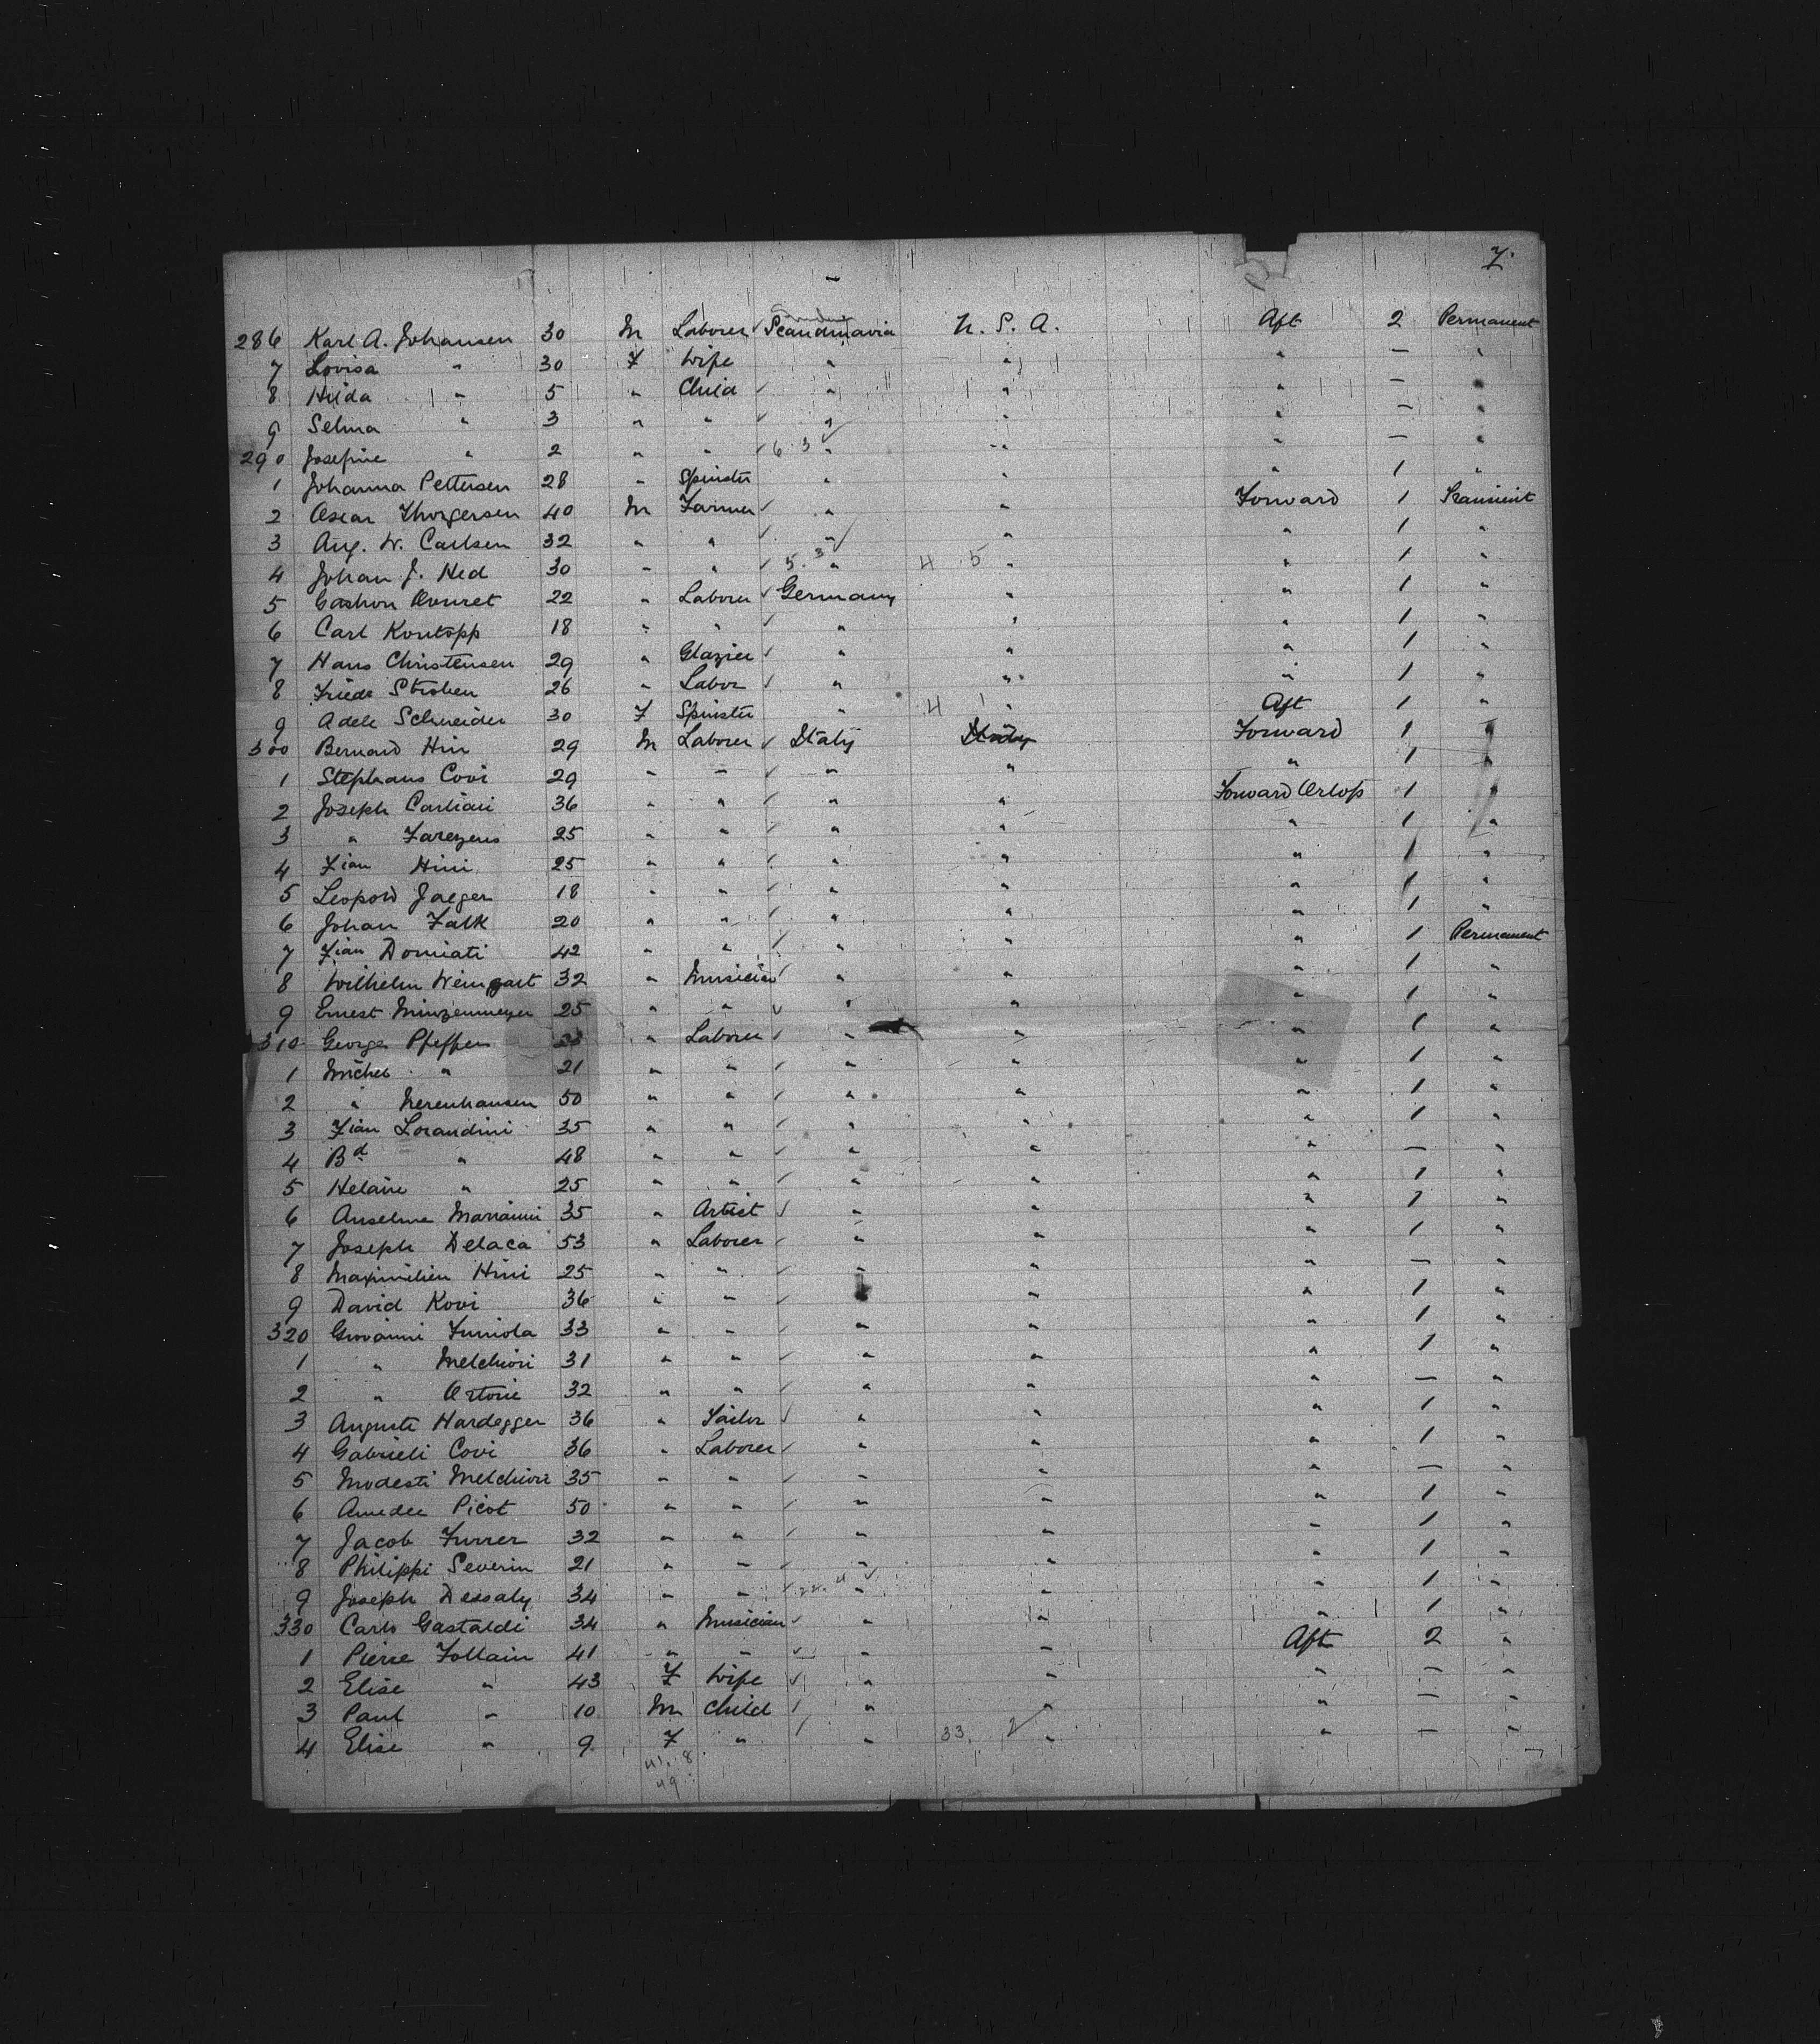 7.
286 Karl A. Johansen 30 M Laborer ✓ Scandinavia U. S. A. Aft 2 Permanent
7 Lovisa " 30 F Wife " " " — "
8 Hilda " 5 " Child ✓ " " " — "
9 Selma " 3 " " ✓ " " " — "
290 Josefine " 2 " " ✓ 6 3 " " " — "
1 Johanna Pettersen 28 " Spinster " " " 1 "
2 Oscar Thorgersen 40 M Farmer ✓ " " Forward 1 Transient
3 Aug. W. Carlsen 32 " " ✓ " " " 1 "
4 Johan J. Hed 30 " " ✓ 5. 3 " 4 5 " " 1 "
5 22 " Laborer ✓ Germany " " 1 "
6 Carl Kontopp 18 " " ✓ " " " 1 "
7 Hans Christensen 29 " Glazier ✓ " " " 1 "
8 Friede Stroben 26 " Labor ✓ " " " 1 "
9 Adele Schneider 30 F Spinster " 4 1 " Aft 1 "
300 Bernard Hini 29 M Laborer ✓ Italy Forward 1 "
1 Stephano Covi 29 " " ✓ " " " 1 "
2 Joseph Carliari 36 " " ✓ " " Forward Orlop 1 "
3 " 25 " " ✓ " " " 1 "
4 Fian Hini 25 " " ✓ " " " 1 "
5 Leopold Jaeger 18 " " ✓ " " " 1 "
6 Johan Falk 20 " " ✓ " " " 1 "
7 Fian Domiati 42 " " ✓ " " " 1 Permanent
8 Wilhelm Weingart 32 " Musician ✓ " " " 1 "
9 Ernest Minzenmeyer 25 " " ✓ " " " 1 "
310 George Pfeffer " Laborer ✓ " " " 1 "
1 Michel " 21 " " ✓ " " " 1 "
2 " Nerenhausen 50 " " ✓ " " " 1 "
3 Fian Lorandini 35 " " ✓ " " " 1 "
4 Bd " 48 " " ✓ " " " — "
5 Helaire " 25 " " ✓ " " " 1 "
6 Anselme Marianni 35 " Artist ✓ " " " 1 "
7 Joseph Delaca 53 " Laborer ✓ " " " 1 "
8 Maximilien Hini 25 " " ✓ " " " — "
9 David Kovi 36 " " ✓ " " 1 "
320 Giovanni Furiola 33 " " ✓ " " " 1 "
1 " Melchiori 31 " " ✓ " " " 1 "
2 " Ortorie 32 " " ✓ " " " — "
3 Auguste Hardegger 36 " Tailor ✓ " " " 1 "
4 Gabrieli Covi 36 " Laborer ✓ " " " 1 "
5 Modesti Melchiori 35 " " ✓ " " " — "
6 Amedee Picot 50 " " ✓ " " " 1 "
7 Jacob Furrer 32 " " ✓ " " " 1 "
8 Philippi Severin 21 " " ✓ " " " 1 "
9 Joseph Dessaly 34 " " ✓ " " " 1 "
330 Carlo Gastaldi 34 " Musician ✓ " " " 1 "
1 Pierre Follain 41 " " ✓ " " Aft 2 "
2 Elise " 43 F Wife ✓ " " " — "
3 Paul " 10 M Child ✓ " " " — "
4 Elise " 9 F " ✓ " 33. 2 " " — "
41. 8
49